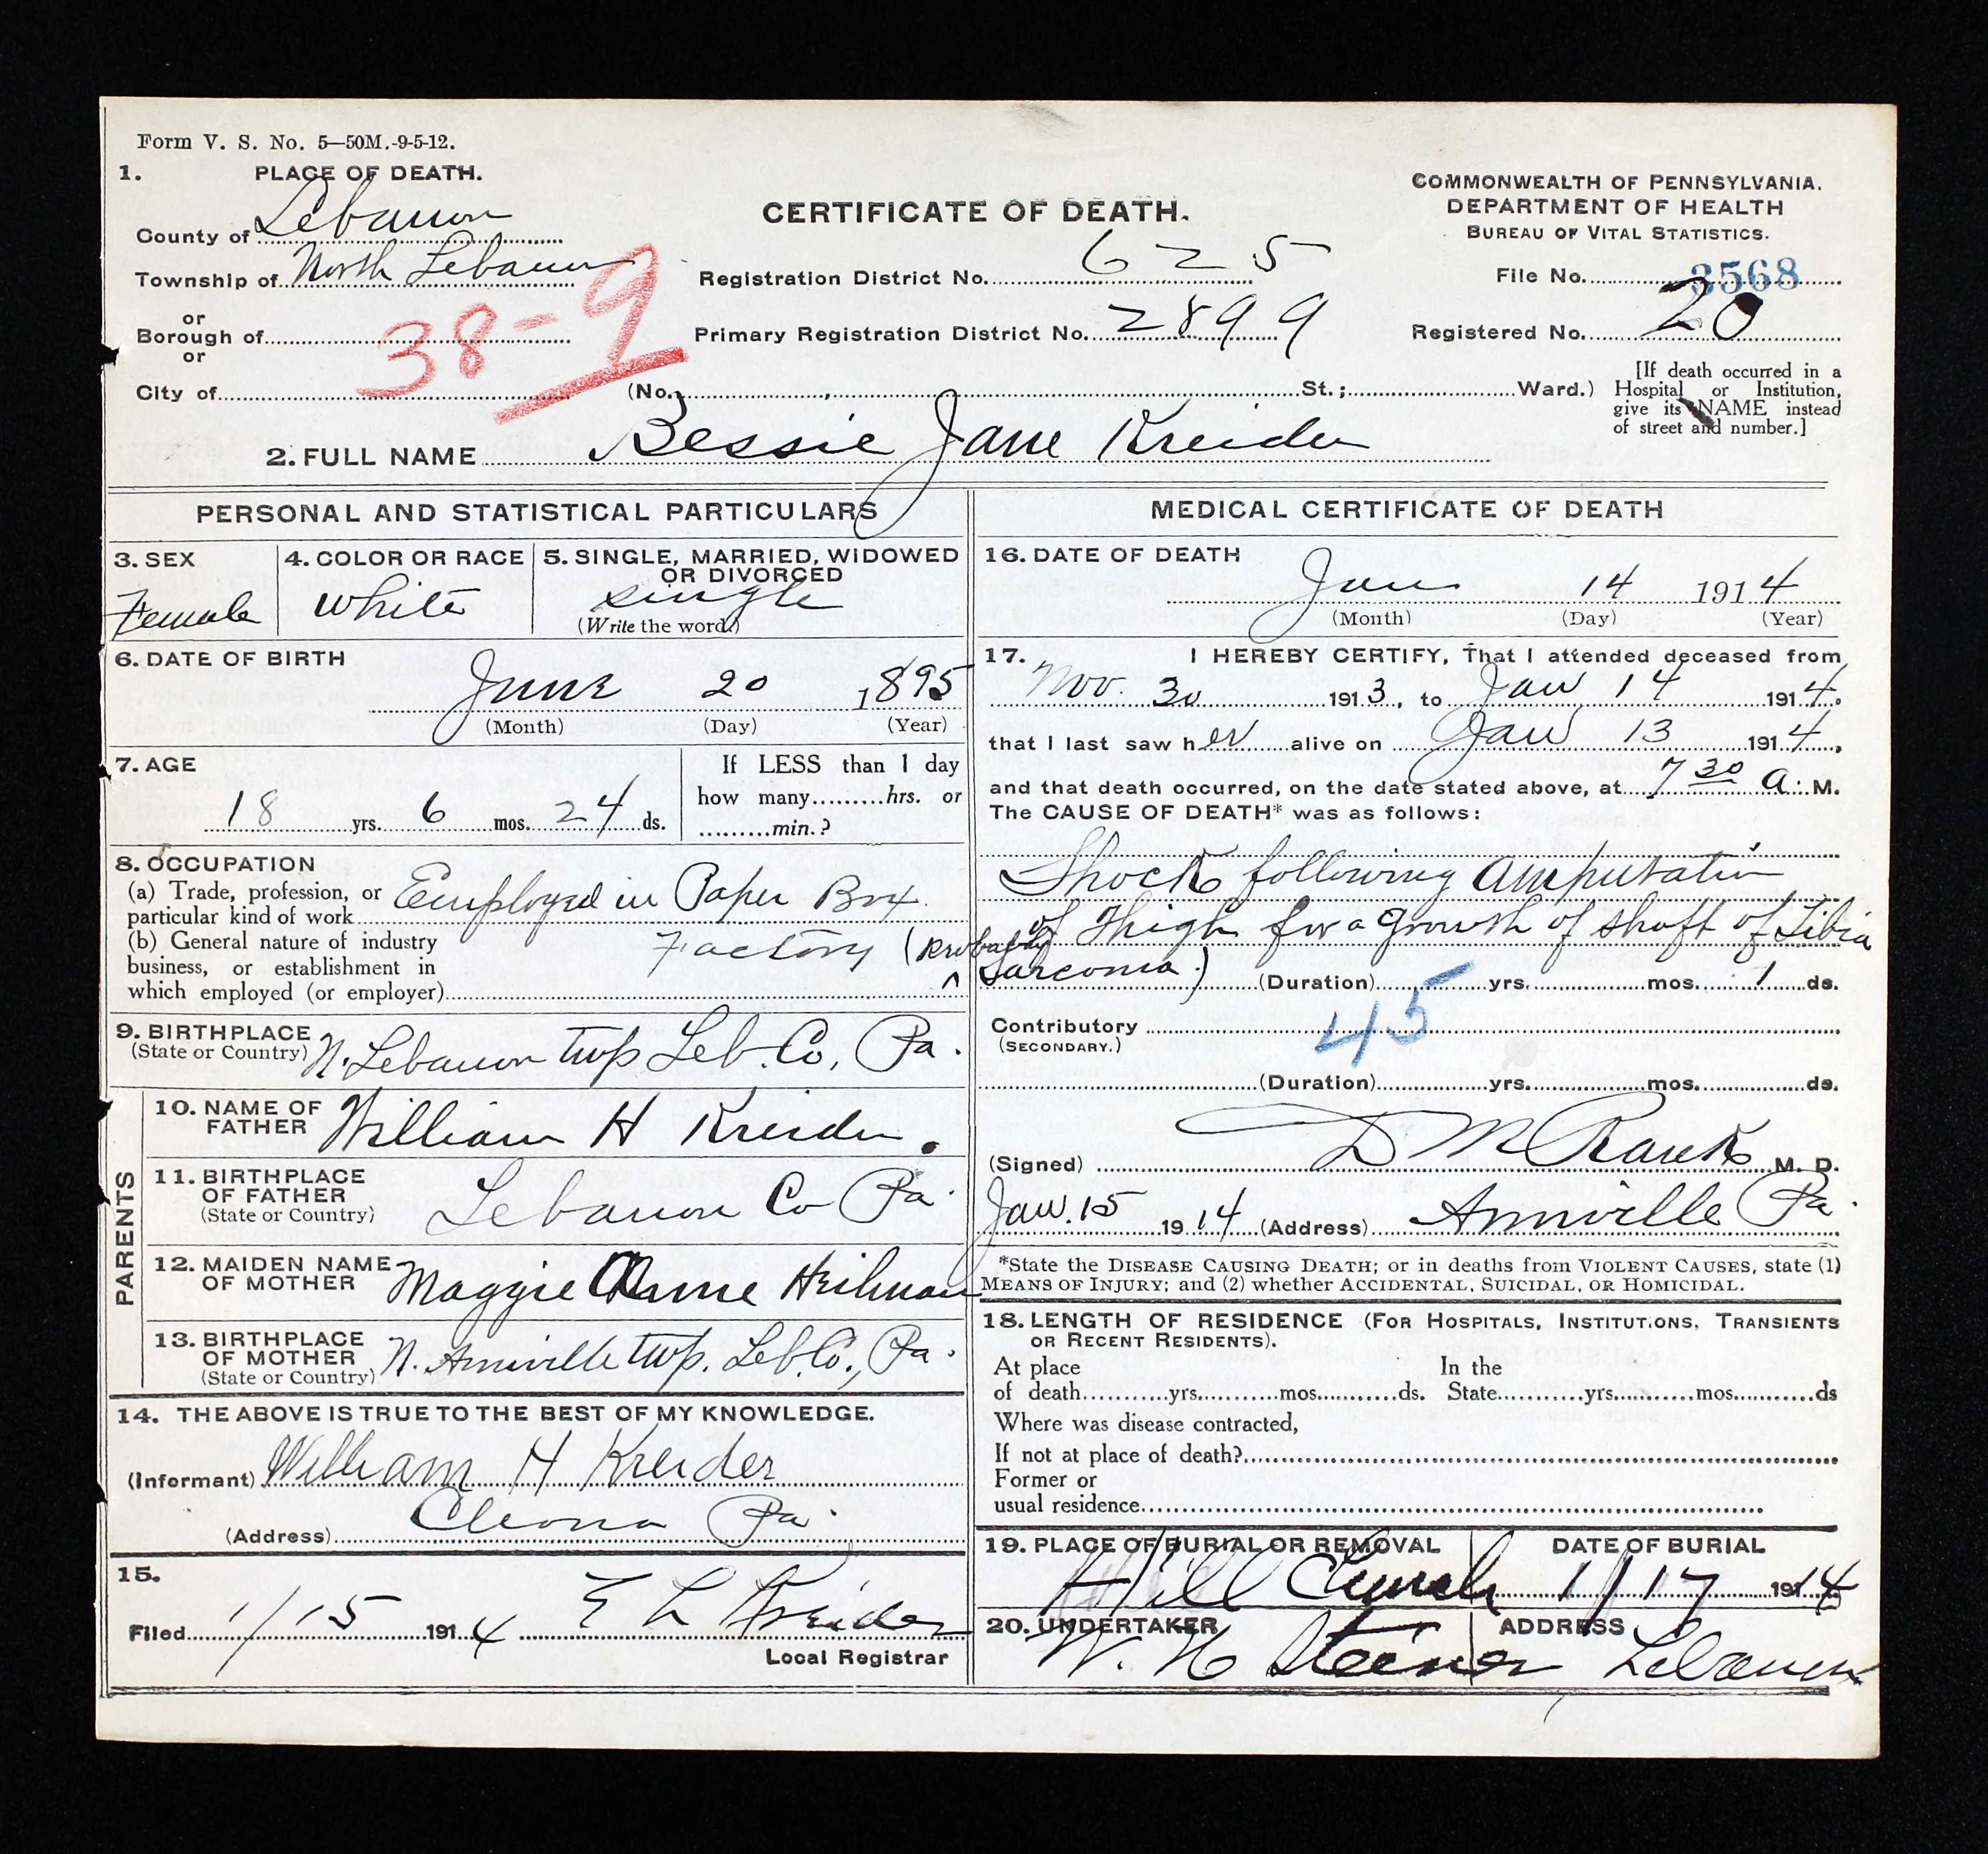 Form V. S. No. 5—50M.-9-5-12.
1. PLACE OF DEATH.
County of Lebanon
Township of North Lebanon
or
Borough of
or
City of
38-9
CERTIFICATE OF DEATH.
Registration District No. 625
Primary Registration District No. 2899
(No. , St.; Ward.)
COMMONWEALTH OF PENNSYLVANIA.
DEPARTMENT OF HEALTH
BUREAU OF VITAL STATISTICS.
File No. 3568
Registered No. 20
[If death occurred in a
Hospital or Institution,
give its NAME instead
of street and number.]
2. FULL NAME Bessie Jane Kreider
PERSONAL AND STATISTICAL PARTICULARS
3. SEX
Female
4. COLOR OR RACE
White
5. SINGLE, MARRIED, WIDOWED
OR DIVORCED
single
(Write the word.)
6. DATE OF BIRTH
June 20 1895
(Month) (Day) (Year)
7. AGE
18 yrs. 6 mos. 24 ds.
If LESS than 1 day
how many hrs. or
min.?
8. OCCUPATION
(a) Trade, profession, or
particular kind of work Employed in Paper Box
(b) General nature of industry
business, or establishment in
which employed (or employer)
Factory
9. BIRTHPLACE
(State or Country) N. Lebanon twp Leb. Co, Pa.
PARENTS
10. NAME OF
FATHER William H Kreider.
11. BIRTHPLACE
OF FATHER
(State or Country) Lebanon Co Pa.
12. MAIDEN NAME
OF MOTHER Maggie Anne Heilman
13. BIRTHPLACE
OF MOTHER
(State or Country) N. Annville twp. Leb Co., Pa.
14. THE ABOVE IS TRUE TO THE BEST OF MY KNOWLEDGE.
(Informant) William H Kreider
(Address) Cleona Pa.
15.
Filed 1/15 1914 E L Kreider
Local Registrar
MEDICAL CERTIFICATE OF DEATH
16. DATE OF DEATH
Jan 14 1914
(Month) (Day) (Year)
17. I HEREBY CERTIFY, That I attended deceased from
Nov. 30 1913, to Jan 14 1914.
that I last saw her alive on Jan 13 1914,
and that death occurred, on the date stated above, at 7 30 a. M.
The CAUSE OF DEATH* was as follows:
Shock following amputation
of Thigh for a Growth of shaft of Tibia
(probably
Sarcoma.) (Duration) yrs. mos. 1 ds.
Contributory
(SECONDARY.)
45
(Duration) yrs. mos. ds.
(Signed) D M Rank M. D.
Jan. 15 1914 (Address) Annville Pa.
*State the DISEASE CAUSING DEATH; or in deaths from VIOLENT CAUSES, state (1)
MEANS OF INJURY; and (2) whether ACCIDENTAL, SUICIDAL, OR HOMICIDAL.
18. LENGTH OF RESIDENCE (FOR HOSPITALS, INSTITUTIONS, TRANSIENTS
OR RECENT RESIDENTS).
At place
of death yrs. mos. ds.
In the
State yrs. mos. ds
Where was disease contracted,
If not at place of death?
Former or
usual residence
19. PLACE OF BURIAL OR REMOVAL
Hill Church
DATE OF BURIAL
1/17 1914
20. UNDERTAKER
W. H Steiner
ADDRESS
Lebanon